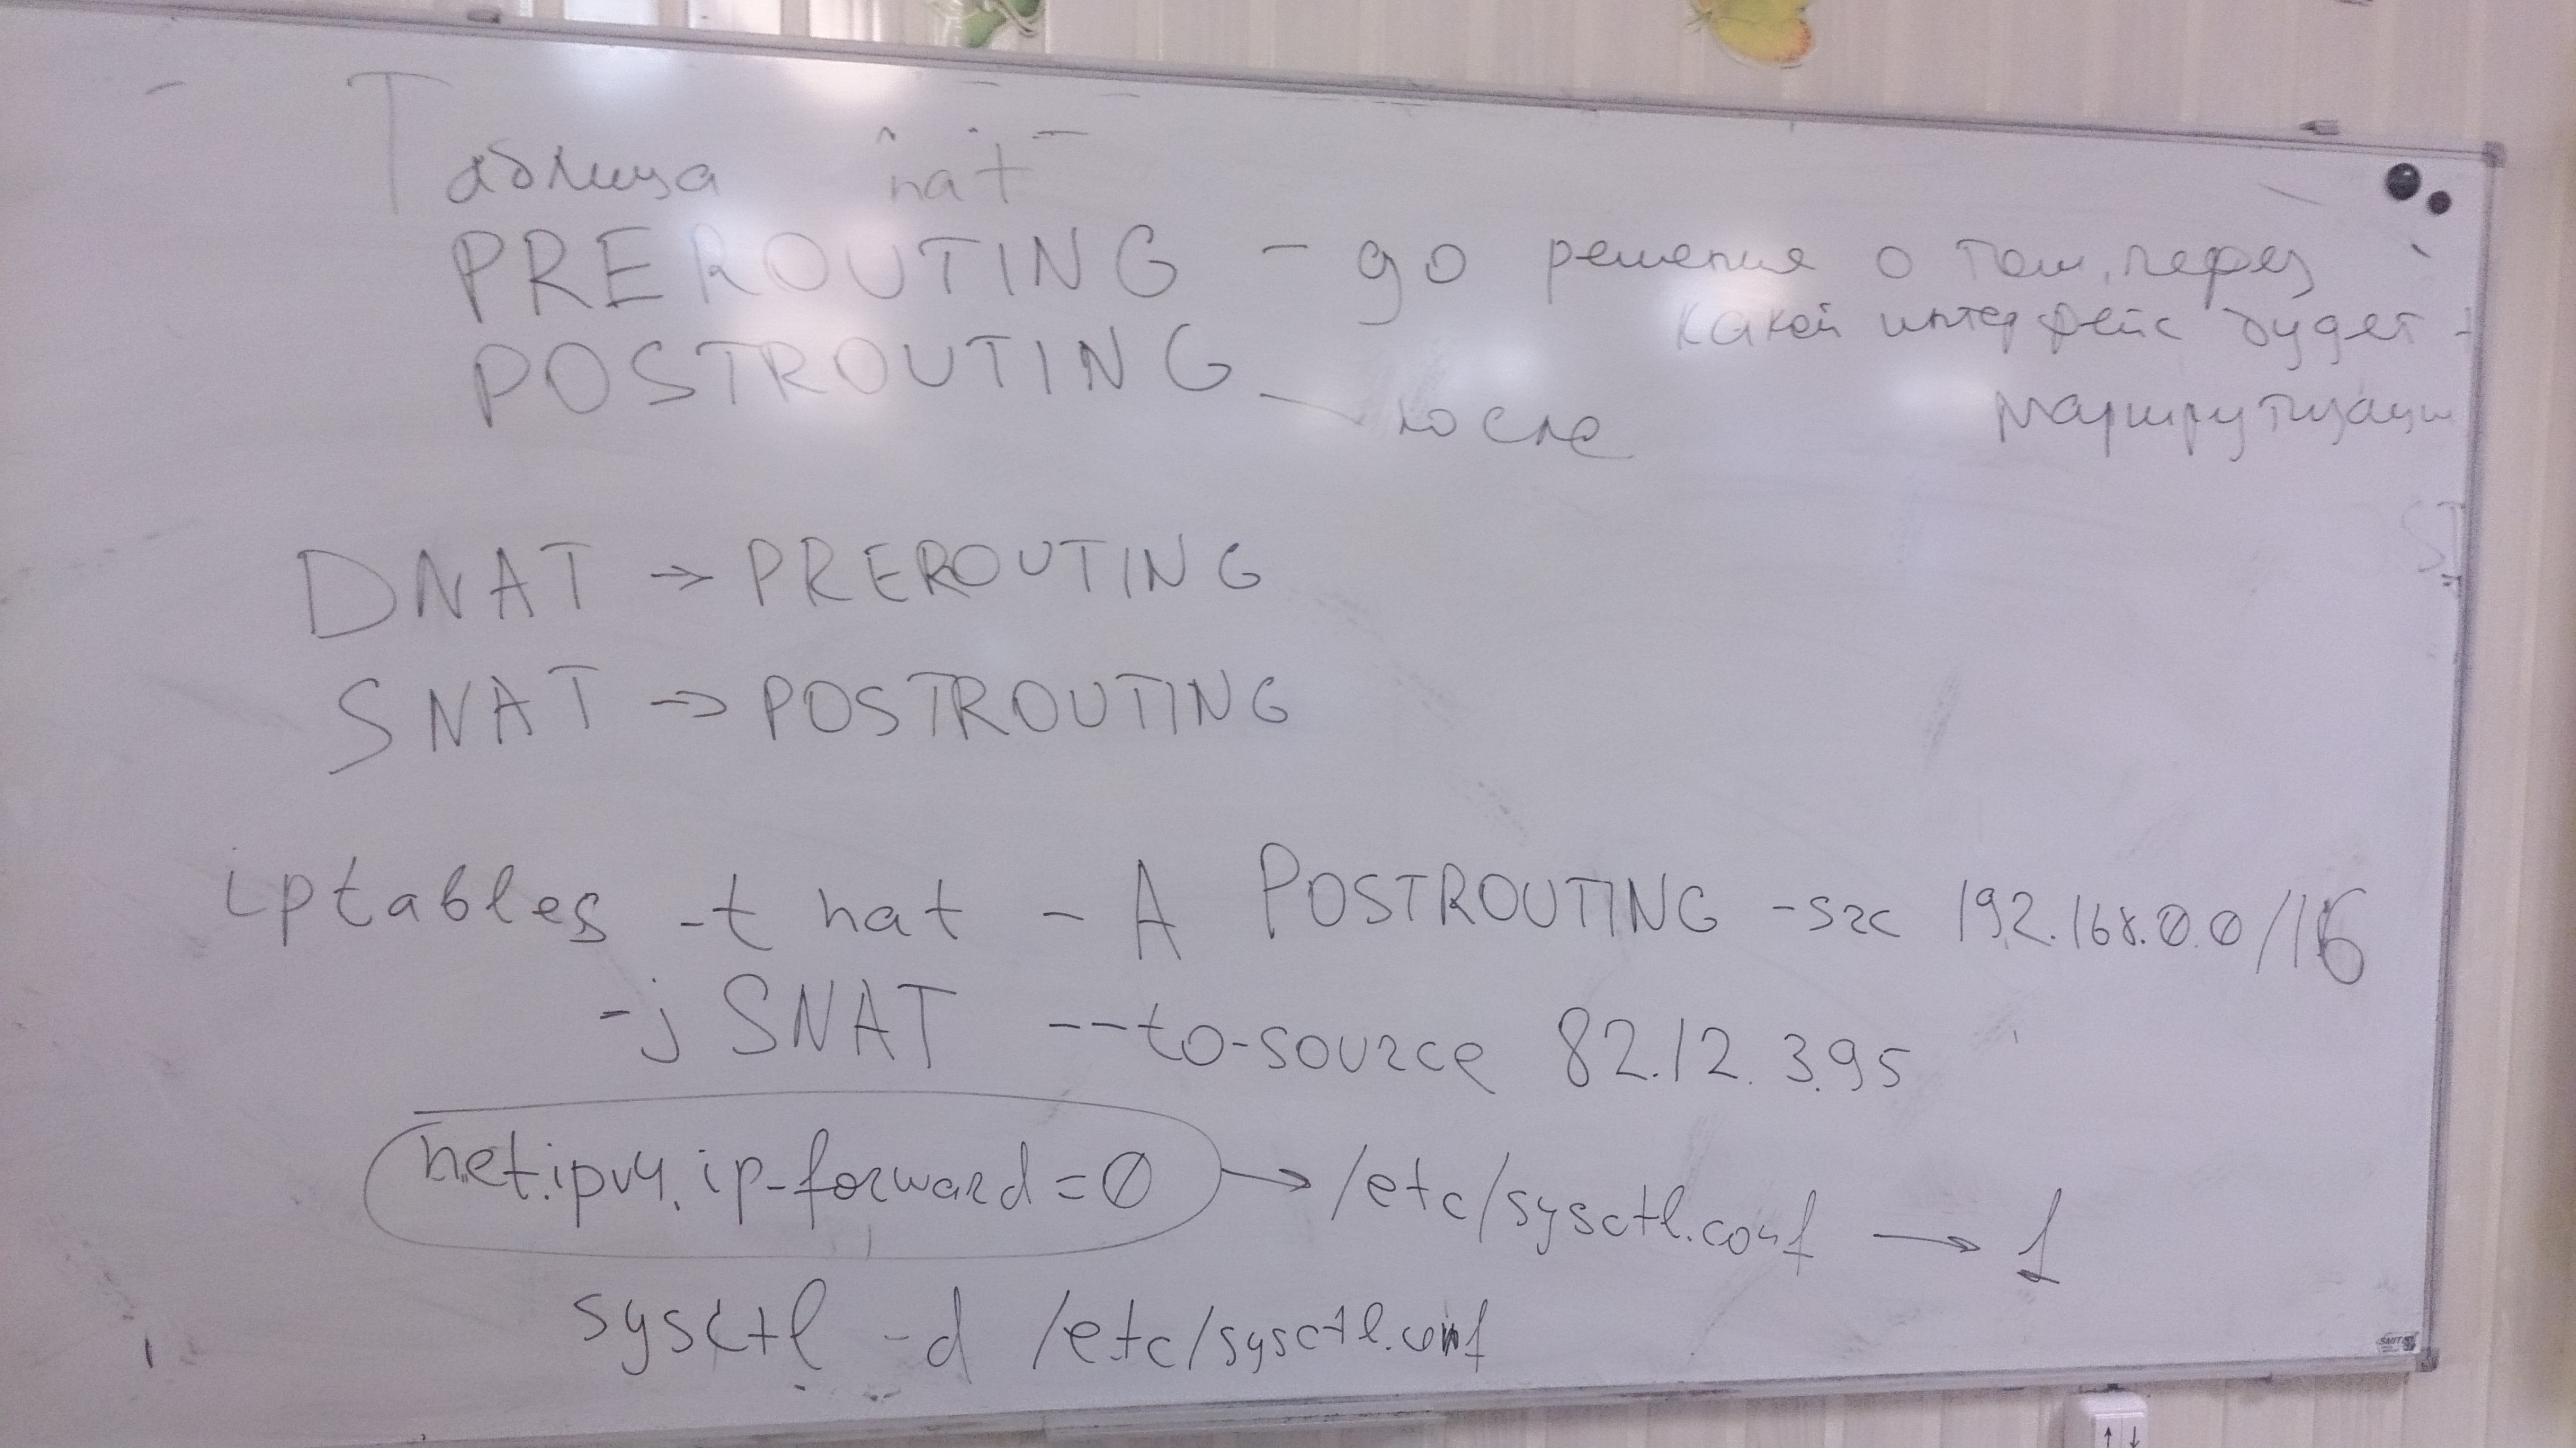 Таблица nat
PREROUTING - до решения о том, через
какой интерфейс будет
POSTROUTING - после
маршрутизаци
DNAT → PREROUTING
SNAT → POSTROUTING
iptables -t nat -A POSTROUTING -src 192.168.0.0/16
-j SNAT --to-source 82.12.3.95
net.ipv4.ip-forward=0 → /etc/sysctl.conf → 1
sysctl -d /etc/sysctl.conf